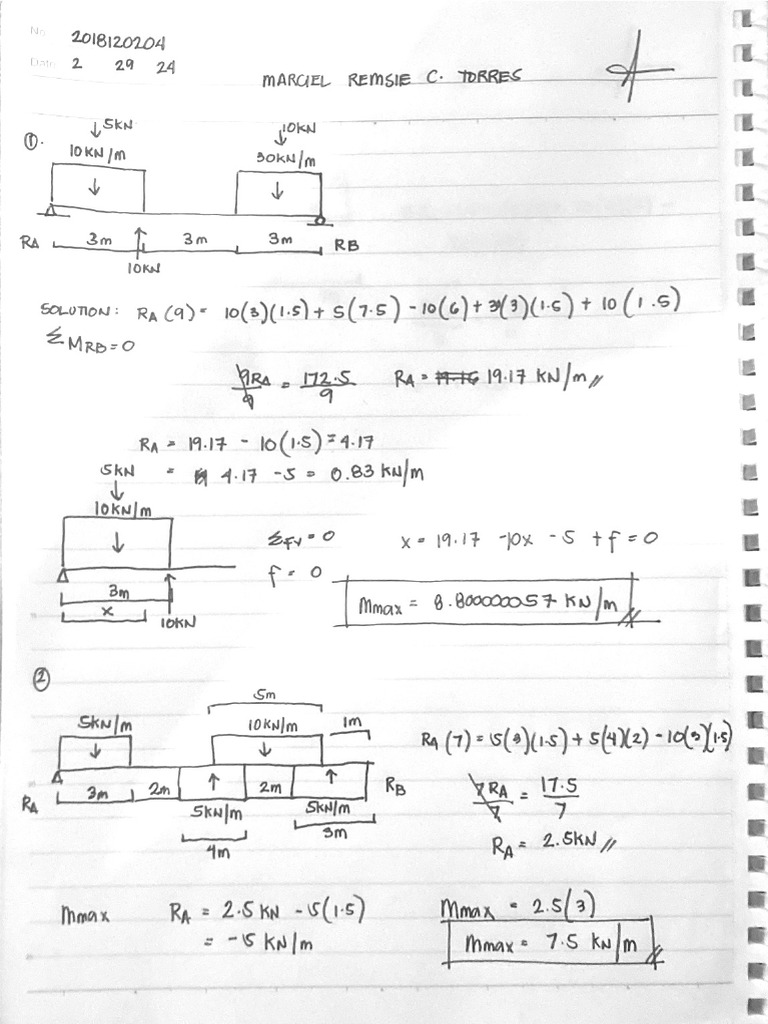 No. 2018120204
Date 2 29 24
MARCIEL REMSIE C. TORRES
①.
5KN
10KN
10KN/m
30KN/m
RA 3m 3m 3m RB
10KN
SOLUTION: RA(9) = 10(3)(1.5) + 5(7.5) - 10(6) + 30(3)(1.5) + 10(1.5)
ΣMRB=0
9RA/9 = 172.5/9 RA = 19.17 KN/m
RA = 19.17 - 10(1.5) = 4.17
= 4.17 - 5 = 0.83 KN/m
5KN
10KN/m
3m
x
10KN
ΣFV=0 x = 19.17 -10x - 5 + f = 0
f = 0
Mmax = 8.800000057 KN/m
②
5m
5KN/m 10KN/m 1m
RA 3m 2m 2m RB
5KN/m 5KN/m
4m 3m
RA(7) = 15(3)(1.5) + 5(4)(2) - 10(3)(1.5)
7RA/7 = 17.5/7
RA = 2.5KN
Mmax RA = 2.5 KN - 15(1.5)
= -15 KN/m
Mmax = 2.5(3)
Mmax = 7.5 KN/m